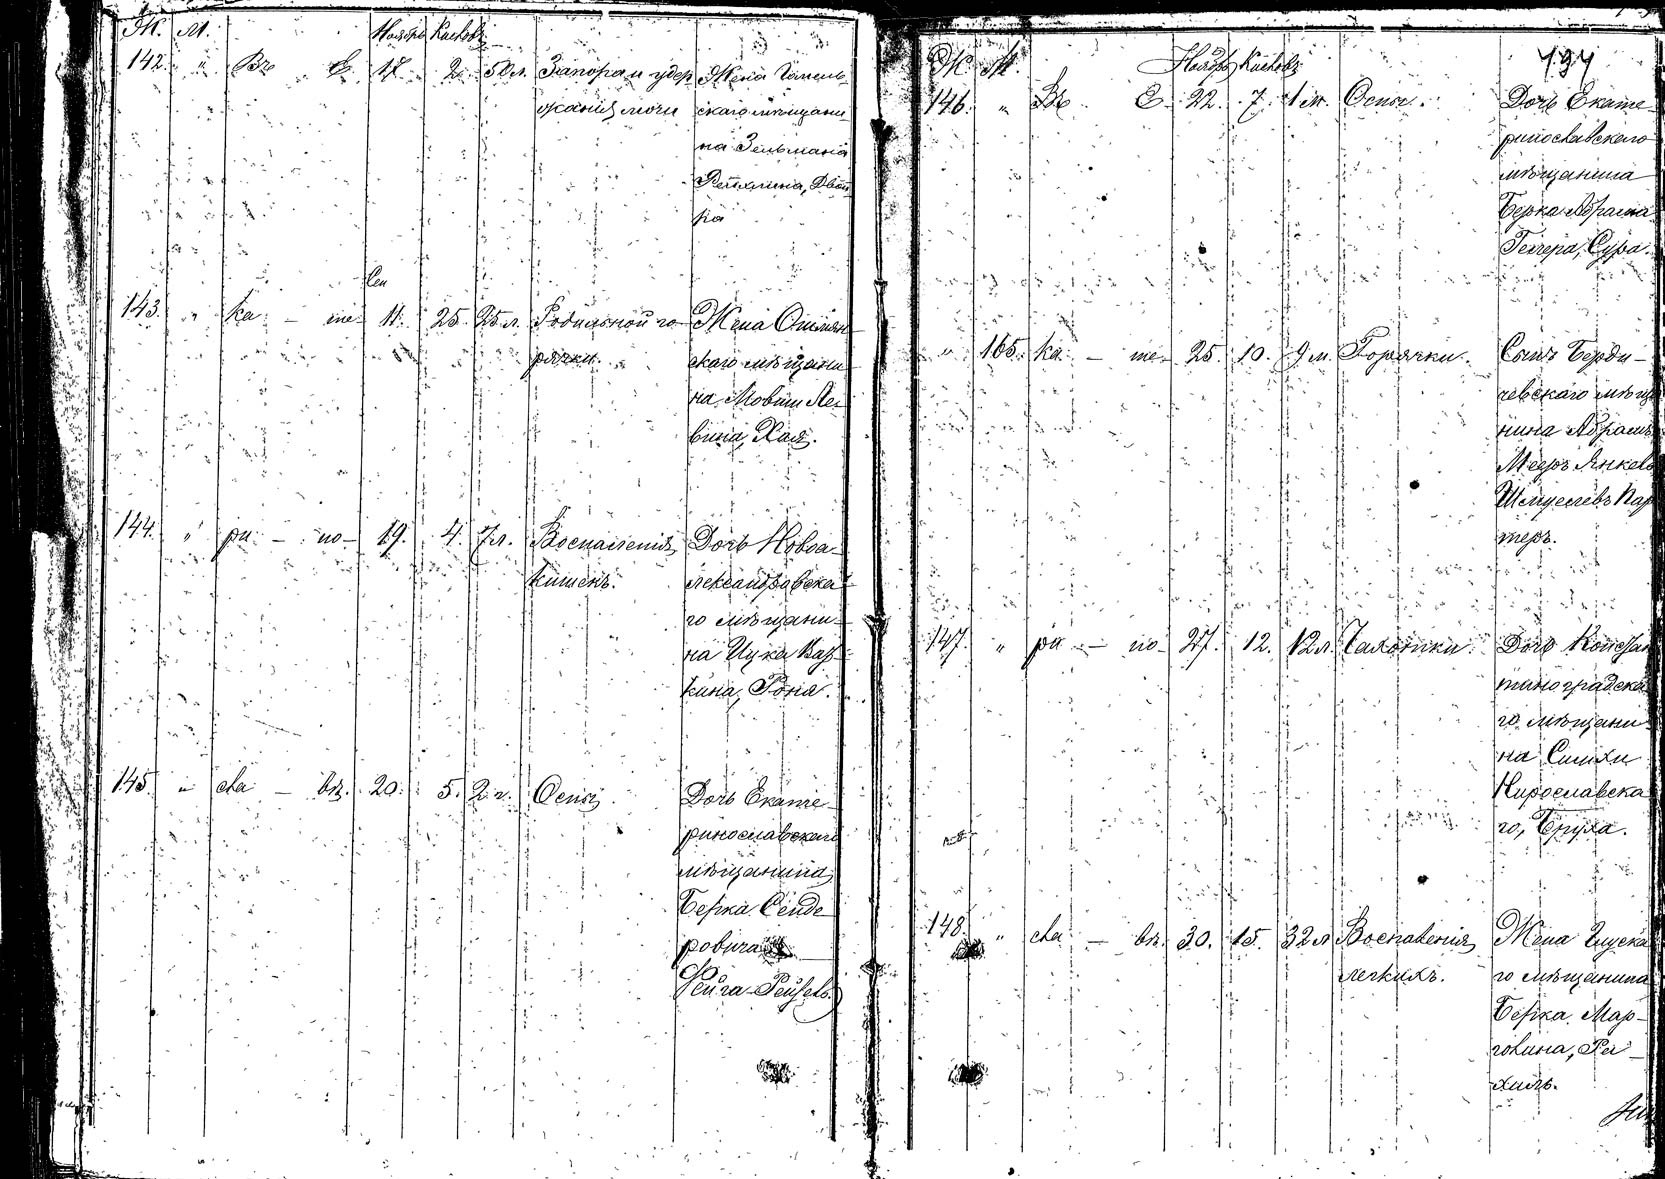 Ж. М. Ноябрь Кислевъ
142 " Въ Е 17 2 50 л. Запора и удер Жена Гомель
жания мочи скаго мѣщани
на Зельмана
Рейхлина, Двей
ра
Сен
143 " ка — те 11. 25 25 л. Родильной го Жена Ошмян
рячки скаго мѣщани
на Мовши Ле
вина, Хая.
144 " ри — но 19. 4. 7 л. Воспаления Дочь Новоа
кишекъ. лександровска
го мѣщани
на Ицка Вар
кина, Роня.
145. " сла — въ. 20. 5. 2 г. Оспы Дочь Екате
ринославскаго
мѣщанина
Берка Сенде
ровича
Фейга-Рейзель.
194
Ж М. Ноябрь Кислевъ
146. " Въ Е. 22. 7. 1 м. Оспы. Дочь Екате
ринославскаго
мѣщанина
Берка Абрама
Гехтера, Сура.
" 165. ка — те 25. 10. 9 м. Горячки. Сынъ Берди
чевскаго мѣща
нина Абрамъ
Мееръ Янкель
Шмуелевъ Кар
теръ.
147. " ри — но 27. 12. 12 л. Чахотки Дочь Констан
тиноградска
го мѣщани
на Симхи
Мирославска
го, Бруха.
148. " сла — въ. 30. 15. 32 л Воспаления Жена Глуска
легкихъ. го мѣщанина
Берка Мар
голина, Ра
хиль.